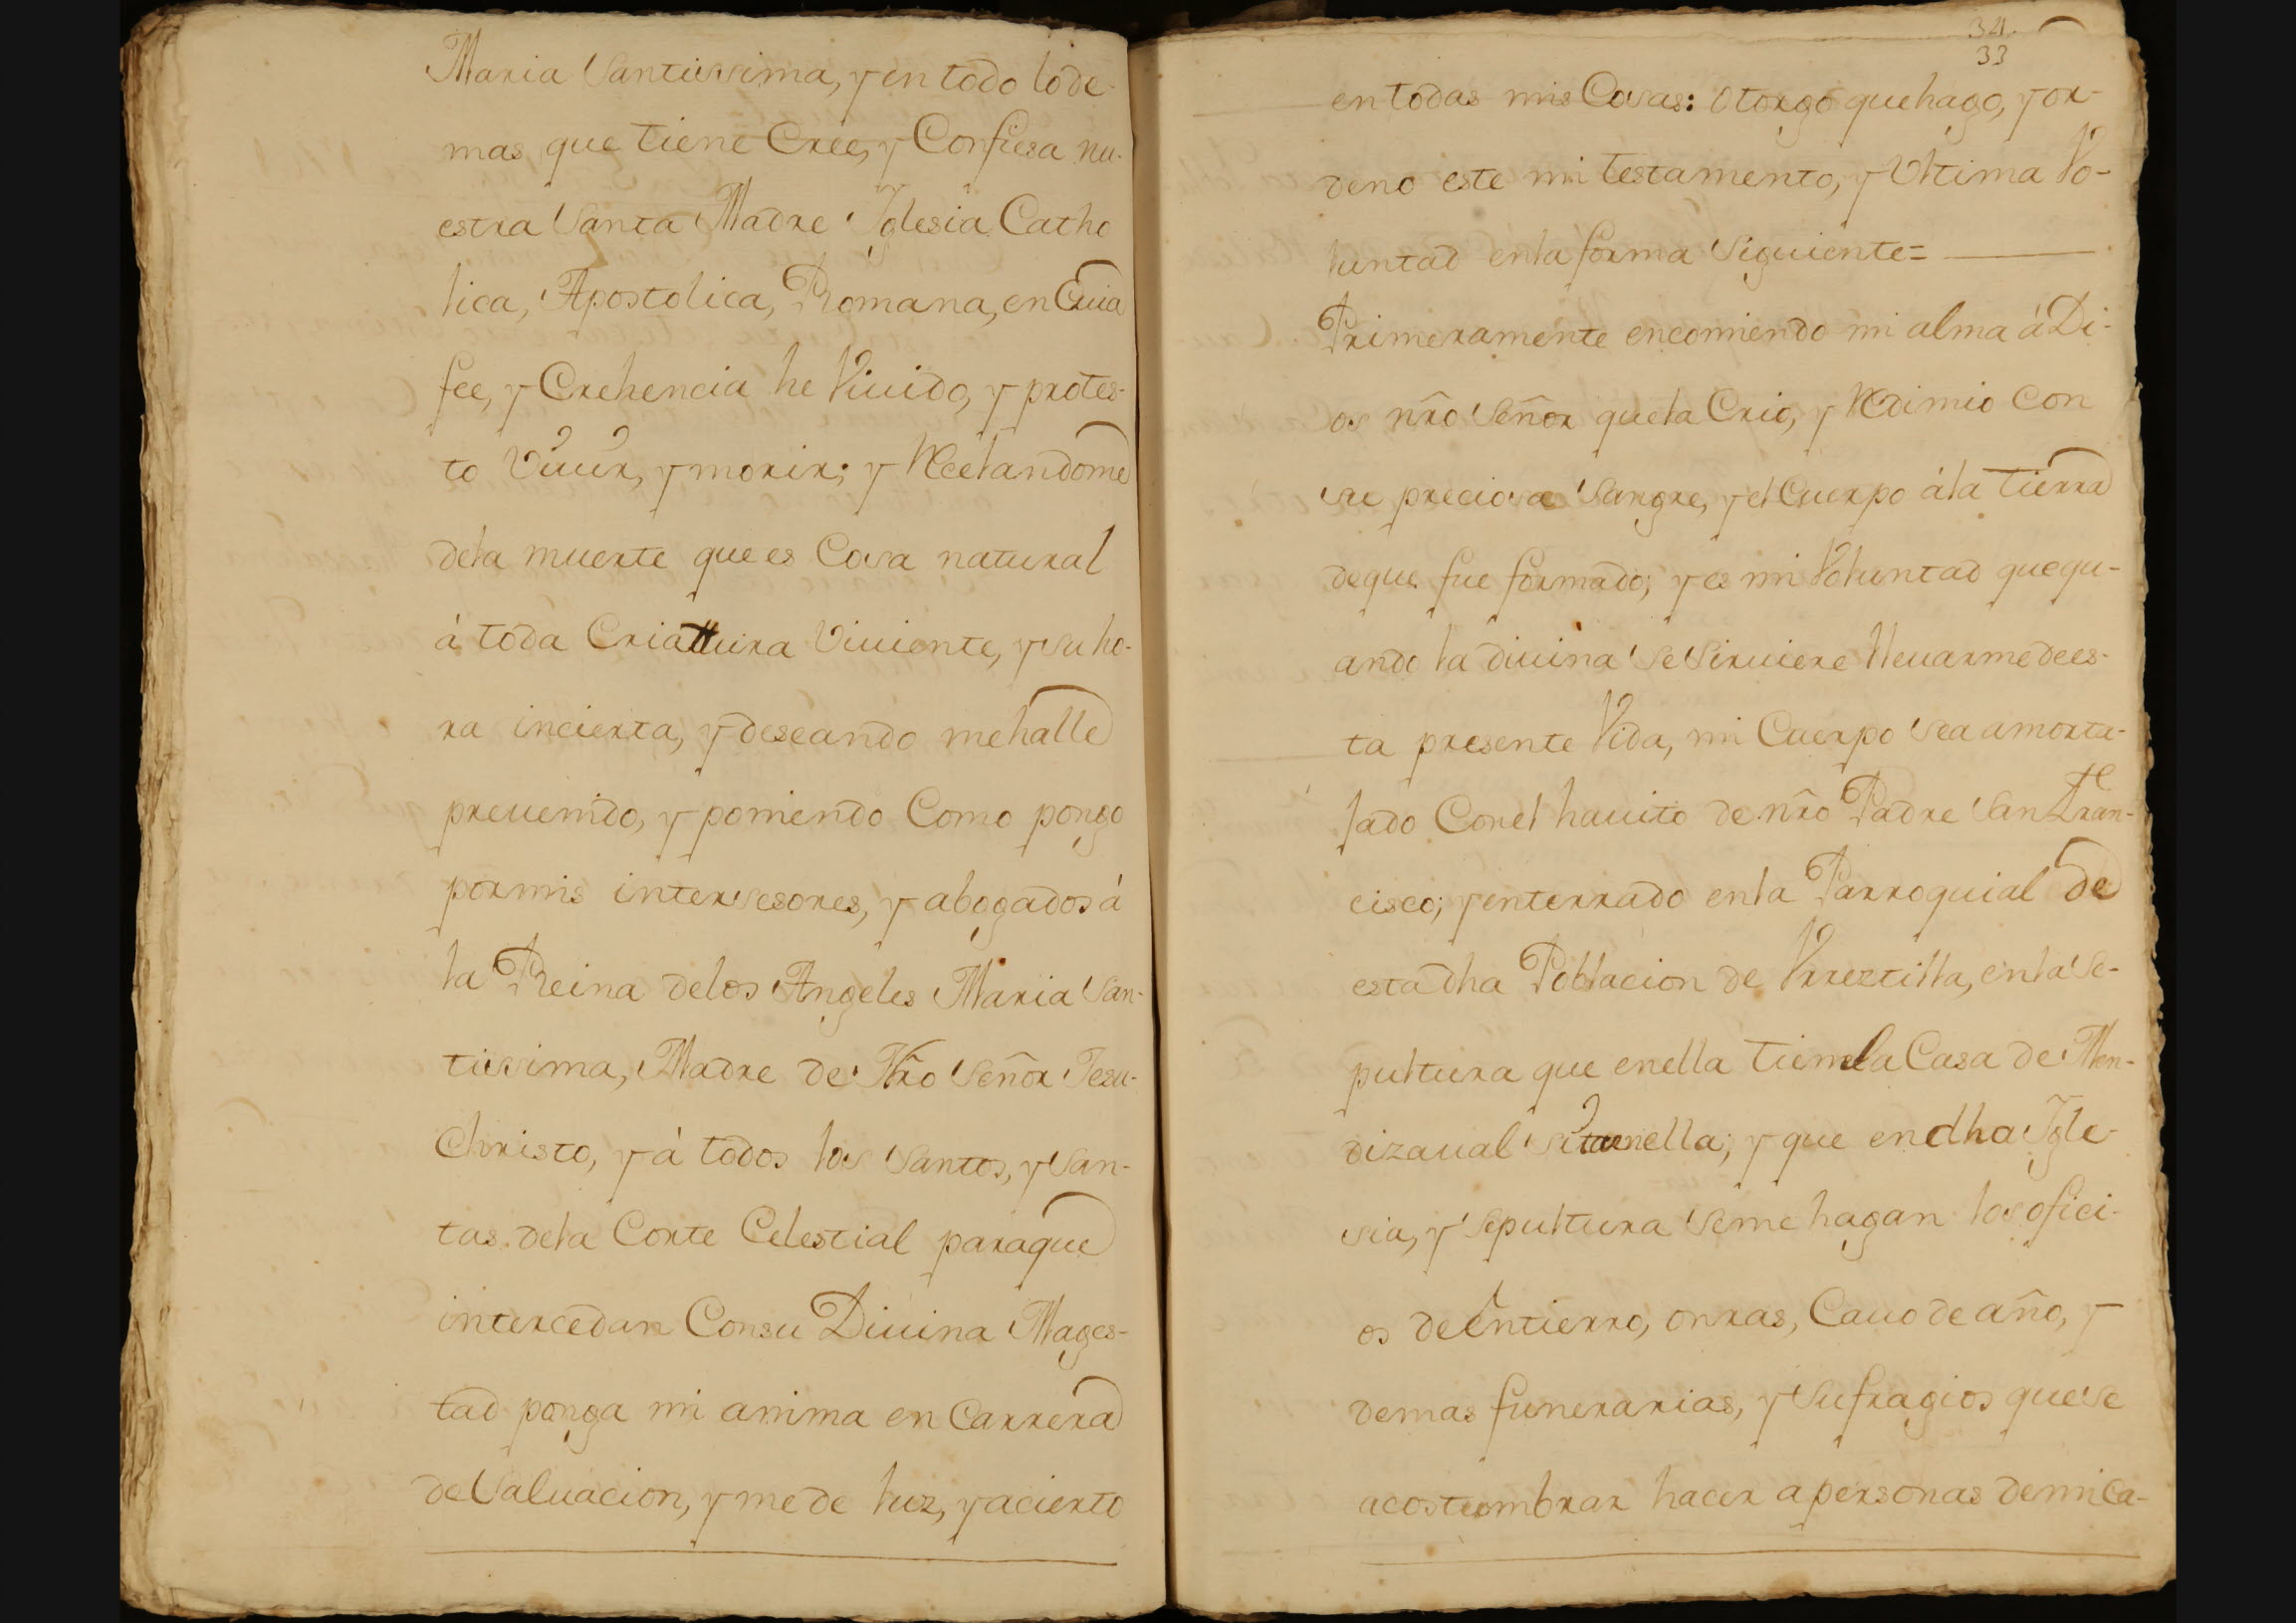 Maria Santissima, y en todo lo de-
mas que tiene Cree, y Confiesa nu-
estra Santa Madre Yglesia Catho
lica, Apostolica, Romana, en Cuia
fee, y Crehencia he Viuido, y protes-
to Viuir, y morir; y Recelandome
dela muerte que es Cosa natural
á toda Criattura Viuiente, y su ho-
ra incierta, y deseando me halle
preuenido, y poniendo Como pongo
por mis intersesores, y abogados á
la Reina delos Angeles Maria San-
tissima, Madre de Nr̃o Señor Jesu-
Christo, y á todos los Santos, y San-
tas dela Corte Celestial paraque
intercedan Consu Diuina Mages-
tad ponga mi anima en Carrera
de Saluacion, y me de luz, y acierto
34.
33
en todas mis Cosas: Otorgo que hago, y or-
deno este mi testamento, y Vltima Vo-
luntad enla forma Siguiente=
Primeramente encomiendo mi alma á Di-
os nr̃o Señor que la Crio, y Redimio Con
su preciosa Sangre, y el Cuerpo ála tierra
deque fue formado; y es mi Voluntad que qu-
ando la diuina Se Siruiere lleuarme de es-
ta presente Vida, mi Cuerpo Sea amorta-
jado Conel hauito de nr̃o Padre San Fran-
cisco; y enterrado enla Parroquial de
esta dha Poblacion de Vrreztilla, enla Se-
pultura que enella tiene la Casa de Men-
dizaual enella; y que en dha Ygle-
sia, y Sepultura Seme hagan los ofici-
os de Entierro, onras, Cauo de año, y
demas funerarias, y Sufragios que se
acostumbrar hacer a personas de mi Ca-